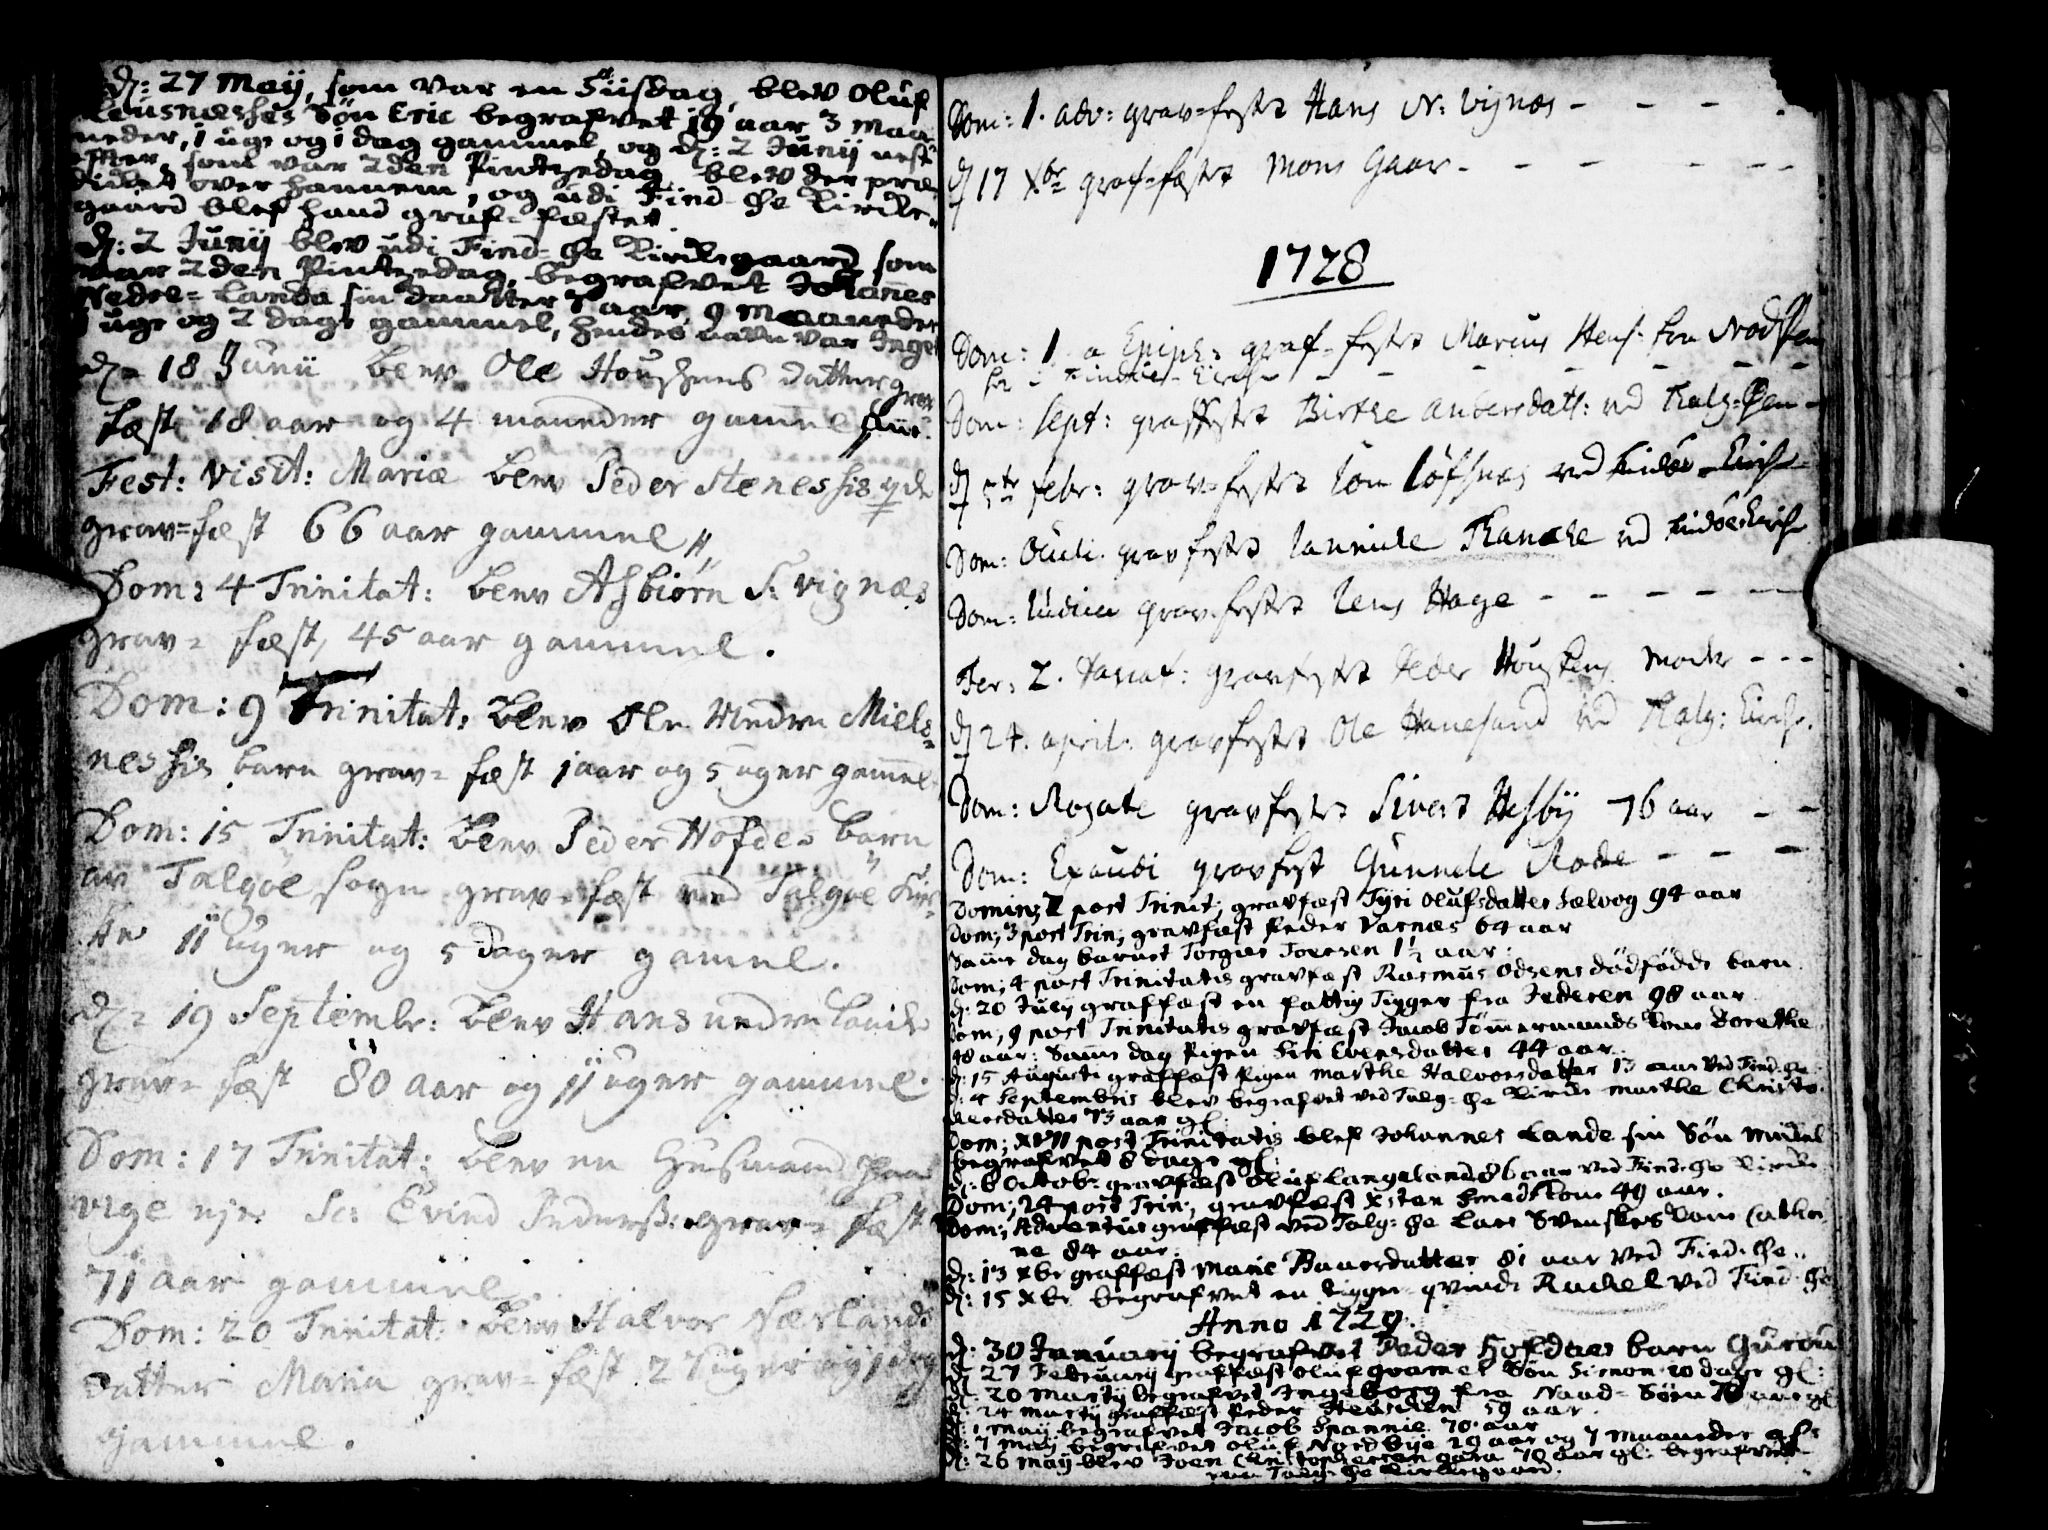 d: 27 Maij, som var en Tiisdag, blev Oluf
Søn Eric begrafvet 19 aar 3 maa-
neder, 1 uge og 1 dag gammel, og d: 2 Junij nest
efter, som var 2den Pintzedag blev der præ-
diket over hannem, og udi Find-øe Kircke-
gaard blef hand graf-fæstet.
d: 2 Junij blev udi Find-øe Kirckegaard som
var 2den Pintzedag, begrafvet Johannes
Nedre-Landa sin daatter 7 aar, 9 Maaneder
1 uge og 2 dage gammel, hendes navn var Inge
d: 18 Junii blev Ole Houskens datter grav
fæst 18 aar og 4 maaneder gamel
Fest: Visit: Mariæ blev Peder Stenes his
grav=fæst 66 aar gammel
Dom: 4 Trinitat: blev Asbiørn S: vignæs
grav= fæst, 45 aar gammel.
Dom: 9 Trinitat: blev Ole Nedre Miels-
nes his barn grav= fæst 1 aar og 5 uger gamel
Dom: 15 Trinitat: blev Peder Hofdes barn
av Talgøe sogn grav=fæst ved Talgøe Kir-
ke 11 uger og 5 dager gamel.
d: 19 Septembr: blev Hans nedre lande
grav= fæst 80 aar og 11 uger gammel.
Dom: 17 Trinitat: blev en Husmand paa
vige eje Sc: Evind Pederss: grav= fæst
71 aar gammel
Dom: 20 Trinitat: blev Halvor Særlands
datter Maria grav= fæst 2 uger og 1 dag
gammel.
Dom: 1. adv: grav=festet Hans N: vignæs - - - -
d 17 Xbr graf=fæstet Mons Gaar - - - - - -
1728
Dom: 1. a Epiph: graf=festet Marcus Hens: fra
Dom: Sept: graffestet Birthe ved Talg:øen -
d 5te febr: grav=festet Løfsnes ved Findøe Kirche
Dom: Oculi. gravfestet Jannicke ved Findøe Kirche
Dom: Judica grav=festet Jens Hage - - - - - -
Fer: 2. Pascat: gravfestet Peder Houskens Moder - - -
d 24. april: gravfestet Ole Hanesand ved Talg: Kirche.
Dom: Rogate gravfestet Sivert Hesbÿ 76 aar - -
Dom: Exaudi gravfest Gunnele - - -
Domin; post Trinit; gravfæst Tyri Olufsdatter Selvog 94 aar
Dom; 3 post Trin; gravfæst Peder Varnæs 64 aar
Samme dag barnet Torgier Toersen 1½ aar.
Dom; 4 post Trinitatis gravfæst Rasmus Odsens dødfødde barn
d: 20 July graffæst en fattig Tigger fra Jederen 98 aar
Dom; 9 post Trinitatis gravfæst Jacob Tømmermands Kone Dorethe
48 aar: Samme dag Pigen Siri Eversdatter 44 aar.
d: 15 Augusti graffæst Pigen Marthe Halvorsdatter 13 aar ved Find-øe
d: 4 Septembris blev begrafvet ved Talg-øe Kircke Marthe Christo-
fersdatter 73 aar gl.
Dom; XVII post Trinitatis blef Johannes Lande sin Søn Mickel
begrafvet 8 dage gl.
d: 6 Octob: gravfæst Oluf Langeland 86 aar ved Find:øe Kircke
Dom; 24 post Trin; gravfæst Xsten Smeds Kone 49 aar.
Dom; Adventus graffæst ved Talg:øe Lars Svenskes Kone Catha-
ne 84 aar.
d: 13 Xbr graffæst Marie Baarsdatter 81 aar ved Find:øe.
d: 15 Xbr begrafvet en tigger qvinde Rachel ved Find:øe
Anno 1729.
d: 30 Januarij begrafvet Peder Hofdaes barn Gurou
d: 27 Februarij graffæst Oluf Gramel Søn Simon 20 dage gl:
d: 20 Martij begrafvet Ingeborg fra Naad-Søen 78 aar gl
d: 24 Martij graffæst Peder Steursien 59 aar
d: 1 Maij begrafvet Jacob Spannie 70 aar
d: 7 Maij begrafvet Oluf Nordbye 29 aar og 7 Maaneder gl:
d: 26 Maij blev Joen Christophersen Gara 70 aar gl: begrafvet
ved Talg-øe Kirckegaard.